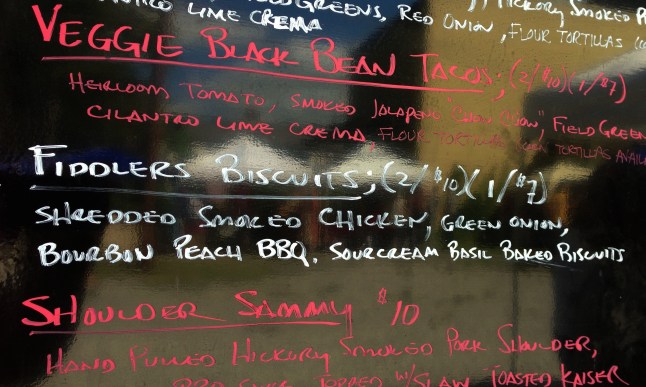 CILANTRO LIME CREMA GREENS, RED ONION, FLOUR TORTILLAS
HICKORY SMOKED
VEGGIE BLACK BEAN TACOS; (2/$10)(1/$7)
HEIRLOOM TOMATO, SMOKED JALAPENO "CHOW CHOW", FIELD GREEN
CILANTRO LIME CREMA, FLOUR TORTILLAS CORN TORTILLAS AVAIL
FIDDLERS BISCUITS; (2/$10)(1/$7)
SHREDDED SMOKED CHICKEN, GREEN ONION,
BOURBON PEACH BBQ, SOURCREAM BASIL BAKED BISCUITS
SHOULDER SAMMY $10
HAND PULLED HICKORY SMOKED PORK SHOULDER,
TOPPED W/SLAW TOASTED KAISER